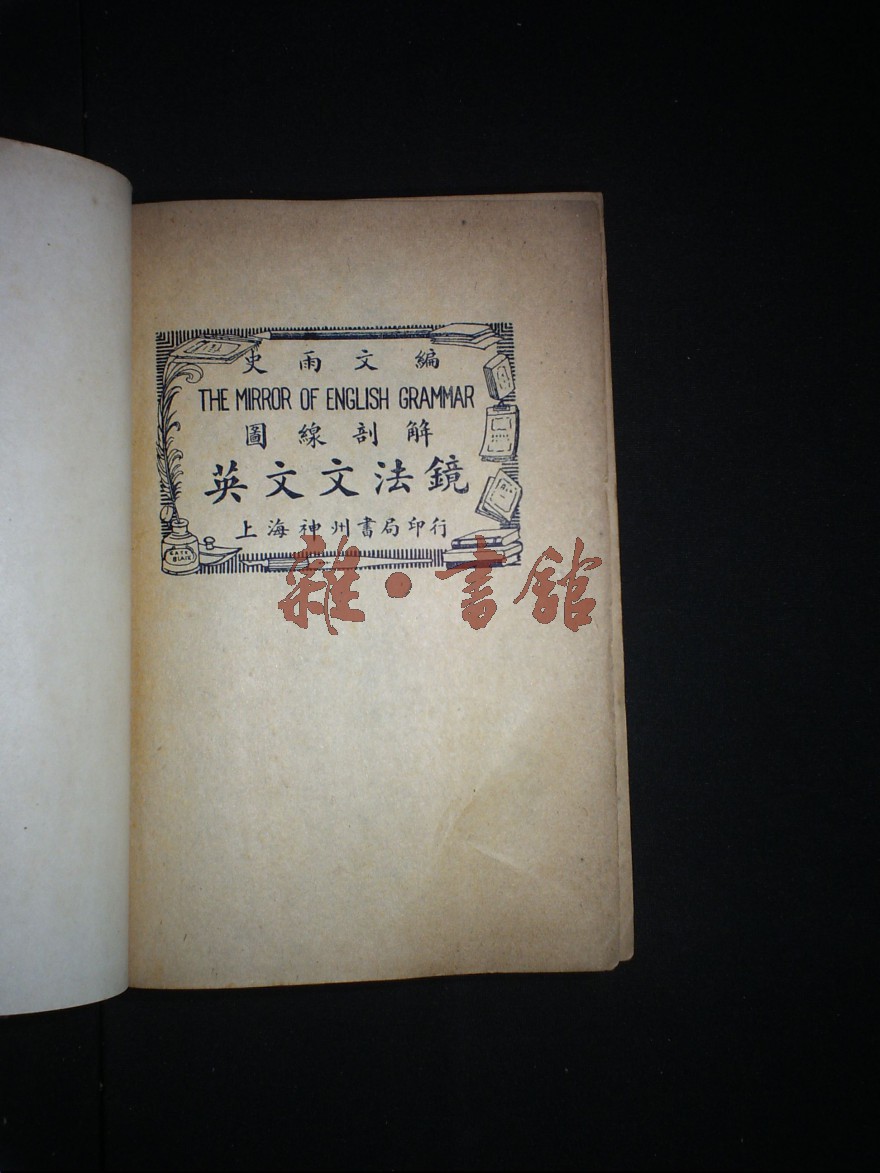 史雨文編
THE MIRROR OF ENGLISH GRAMMAR
圖線剖解
英文文法鏡
上海神州書局印行
雜·書館